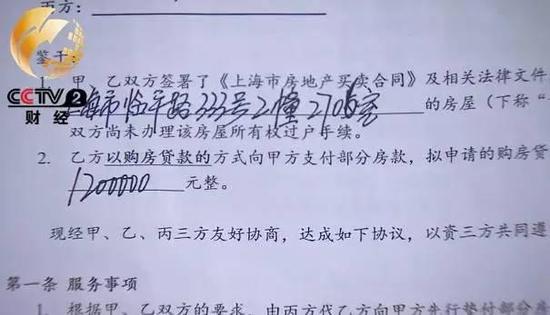 丙方：
CCTV 2
财经
鉴于：
1. 甲、乙双方签署了《上海市房地产买卖合同》及相关法律文件
上海市临平路333号2幢2706室 的房屋（下称“
双方尚未办理该房屋所有权过户手续。
2. 乙方以购房贷款的方式向甲方支付部分房款，拟申请的购房贷
1200000 元整。
现经甲、乙、丙三方友好协商，达成如下协议，以资三方共同遵
第一条 服务事项
1. 根据甲、乙双方的要求，由丙方代乙方向甲方先行垫付部分房